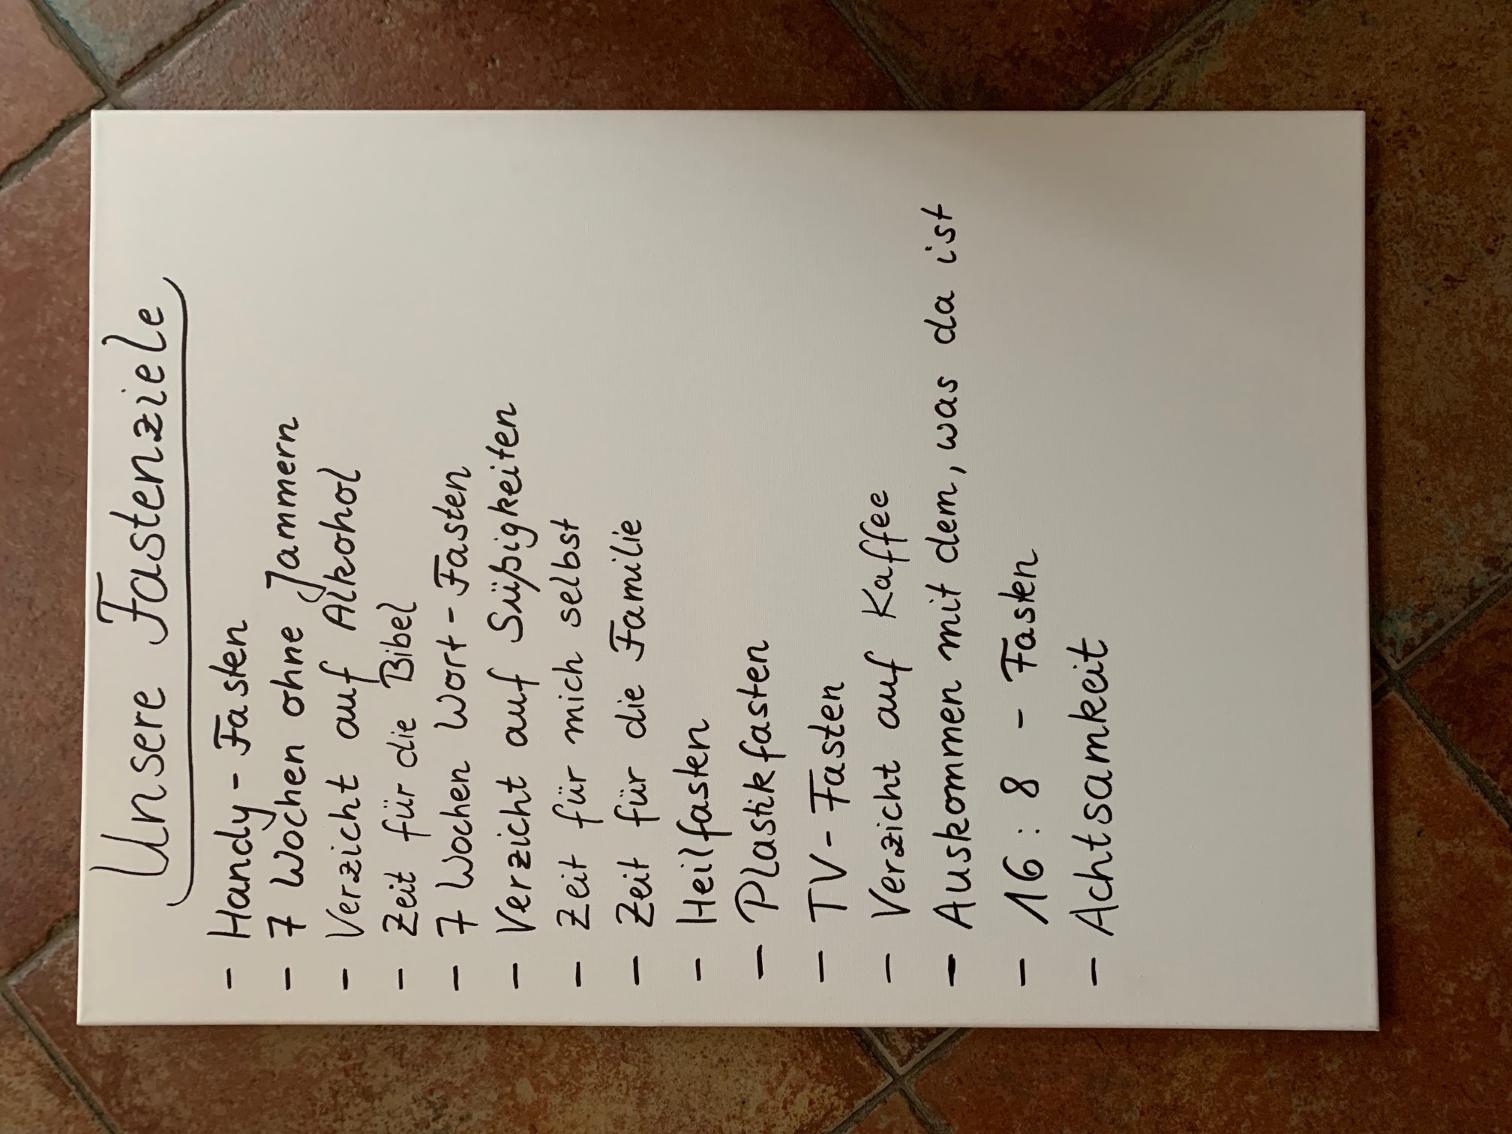 Unsere Fastenziele
- Handy-Fasten
- 7 Wochen ohne Jammern
- Verzicht auf Alkohol
- Zeit für die Bibel
- 7 Wochen Wort-Fasten
- Verzicht auf Süßigkeiten
- Zeit für mich selbst
- Zeit für die Familie
- Heilfasten
- Plastikfasten
- TV-Fasten
- Verzicht auf Kaffee
- Auskommen mit dem, was da ist
- 16:8 - Fasten
- Achtsamkeit